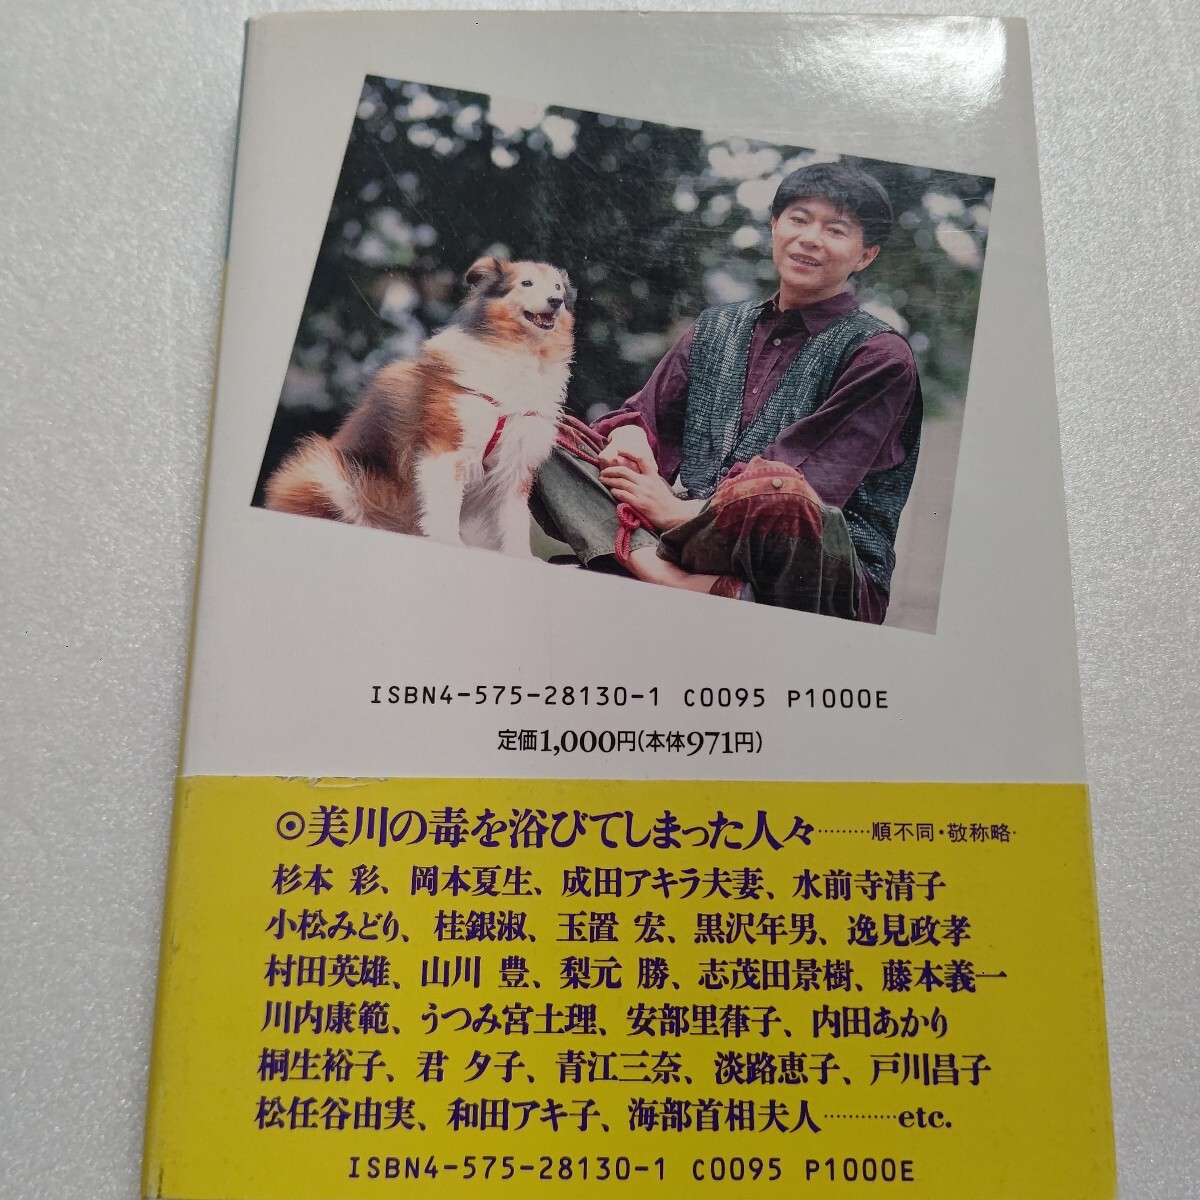 ISBN4-575-28130-1 C0095 P1000E
定価1,000円(本体971円)
◉美川の毒を浴びてしまった人々………順不同・敬称略・
杉本 彩、岡本夏生、成田アキラ夫妻、水前寺清子
小松みどり、桂銀淑、玉置 宏、黒沢年男、逸見政孝
村田英雄、山川 豊、梨元 勝、志茂田景樹、藤本義一
川内康範、うつみ宮土理、安部里葎子、内田あかり
桐生裕子、君 夕子、青江三奈、淡路恵子、戸川昌子
松任谷由実、和田アキ子、海部首相夫人…………etc.
ISBN4-575-28130-1 C0095 P1000E